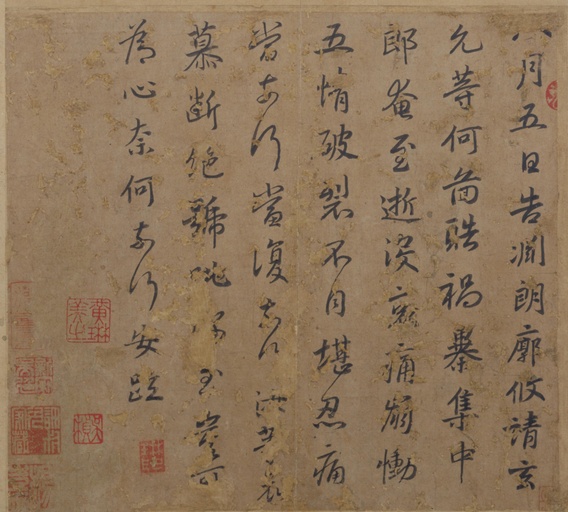 八月五日告淵朗廓攸靖玄
允等何啚酷禍暴集中
郎奄至逝沒哀痛崩慟
五情破裂不自堪忍痛
當奈何當復奈何汝等哀
慕斷絕號咷深至豈可
為心奈何奈何安疏
黃琳美之